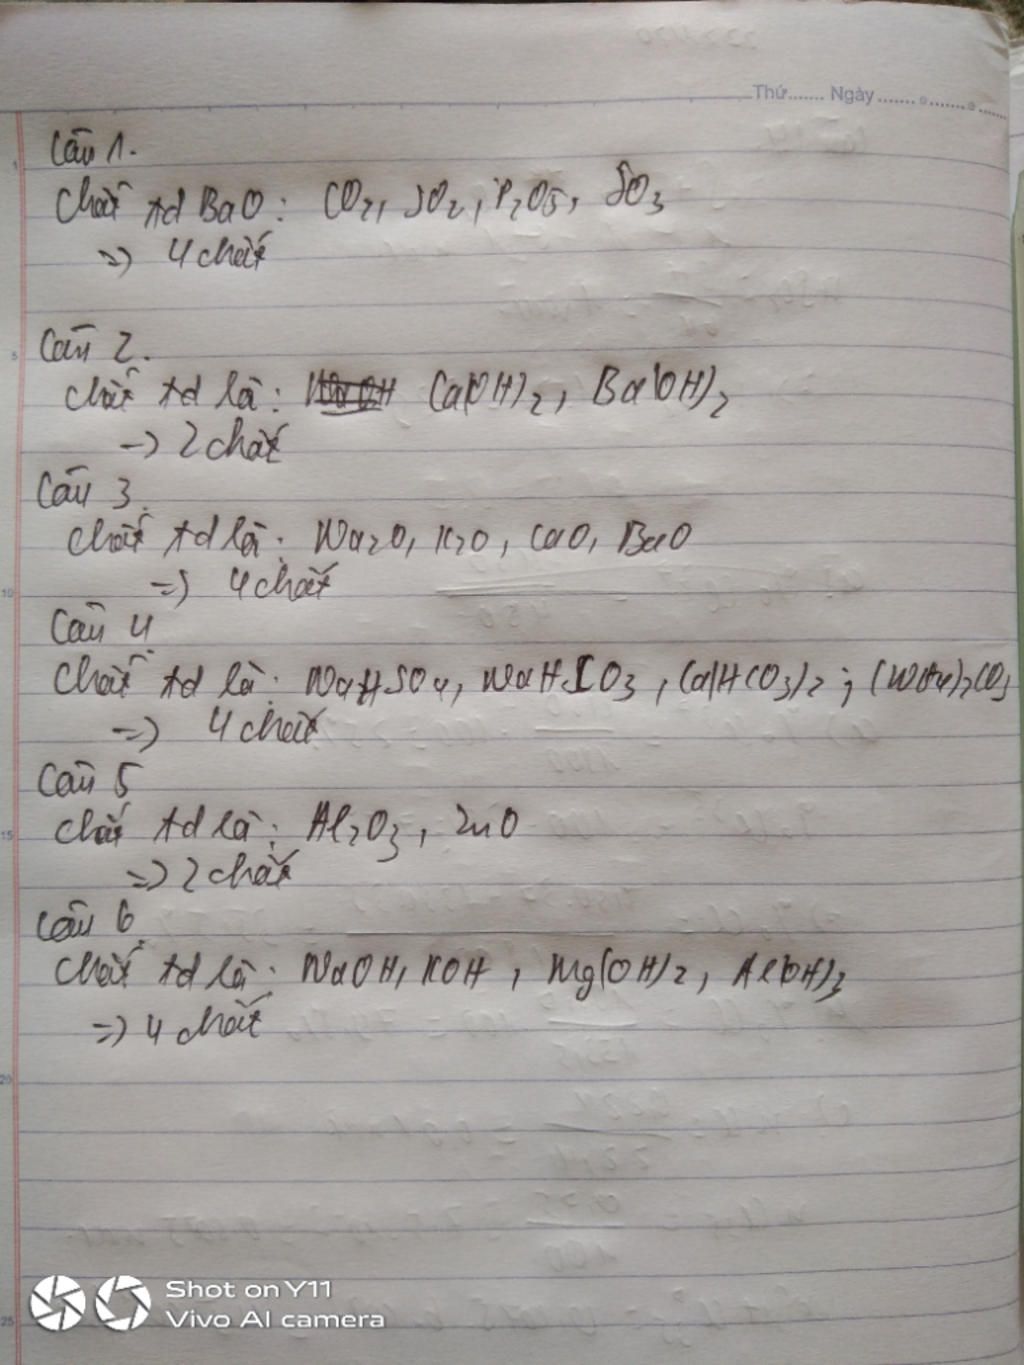 Thứ....... Ngày.......
Câu 1.
Chất td BaO: CO2, SO2, P2O5, SO3
=> 4 chất
Câu 2.
Chất td là: Ca(OH)2, Ba(OH)2
=> 2 chất
Câu 3.
Chất td là: Na2O, K2O, CaO, BaO
=> 4 chất
Câu 4.
Chất td là: NaHSO4, NaHCO3, Ca(HCO3)2; (NH4)2CO3
=> 4 chất
Câu 5
Chất td là: Al2O3, ZnO
=> 2 chất
Câu 6.
Chất td là: NaOH, KOH, Mg(OH)2, Al(OH)3
=> 4 chất
Shot on Y11
Vivo AI camera